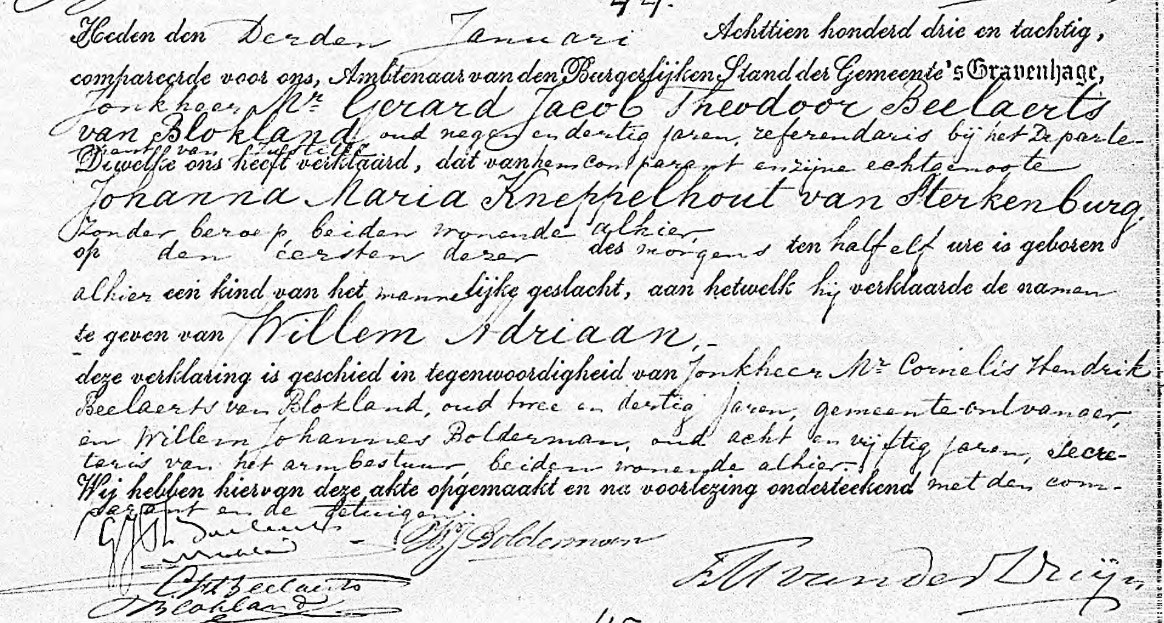 44.
Heden den Derden Januari Achttien honderd drie en tachtig,
compareerde voor ons, Ambtenaar van den Burgerlijken Stand der Gemeente 's Gravenhage,
Jonkheer Mr Gerard Jacob Theodoor Beelaerts
van Blokland, oud negen en dertig jaren, referendaris bij het Departe-
ment van Justitie
Diwelke ons heeft verklaard, dat van hem comparant en zijne echtgenoote
Johanna Maria Kneppelhout van Sterkenburg,
zonder beroep, beiden wonende alhier,
op den eersten dezer des morgens ten half elf ure is geboren
alhier een kind van het mannelijke geslacht, aan hetwelk hij verklaarde de namen
te geven van Willem Adriaan,
deze verklaring is geschied in tegenwoordigheid van Jonkheer Mr Cornelis Hendrik
Beelaerts van Blokland, oud twee en dertig jaren, gemeente-ontvanger,
en Willem Johannes Bolderman, oud acht en vijftig jaren, secre-
taris van het armbestuur, beiden wonende alhier.
Wij hebben hiervan deze akte opgemaakt en na voorlezing onderteekend met den com-
parant en de getuigen.
GJTh Beelaerts
WJ Bolderman
CH Beelaerts
v Blokland
van der Druijn
45